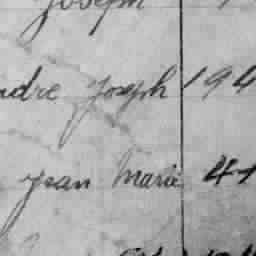 Joseph
ndre Joseph 194
Jean Marie 41